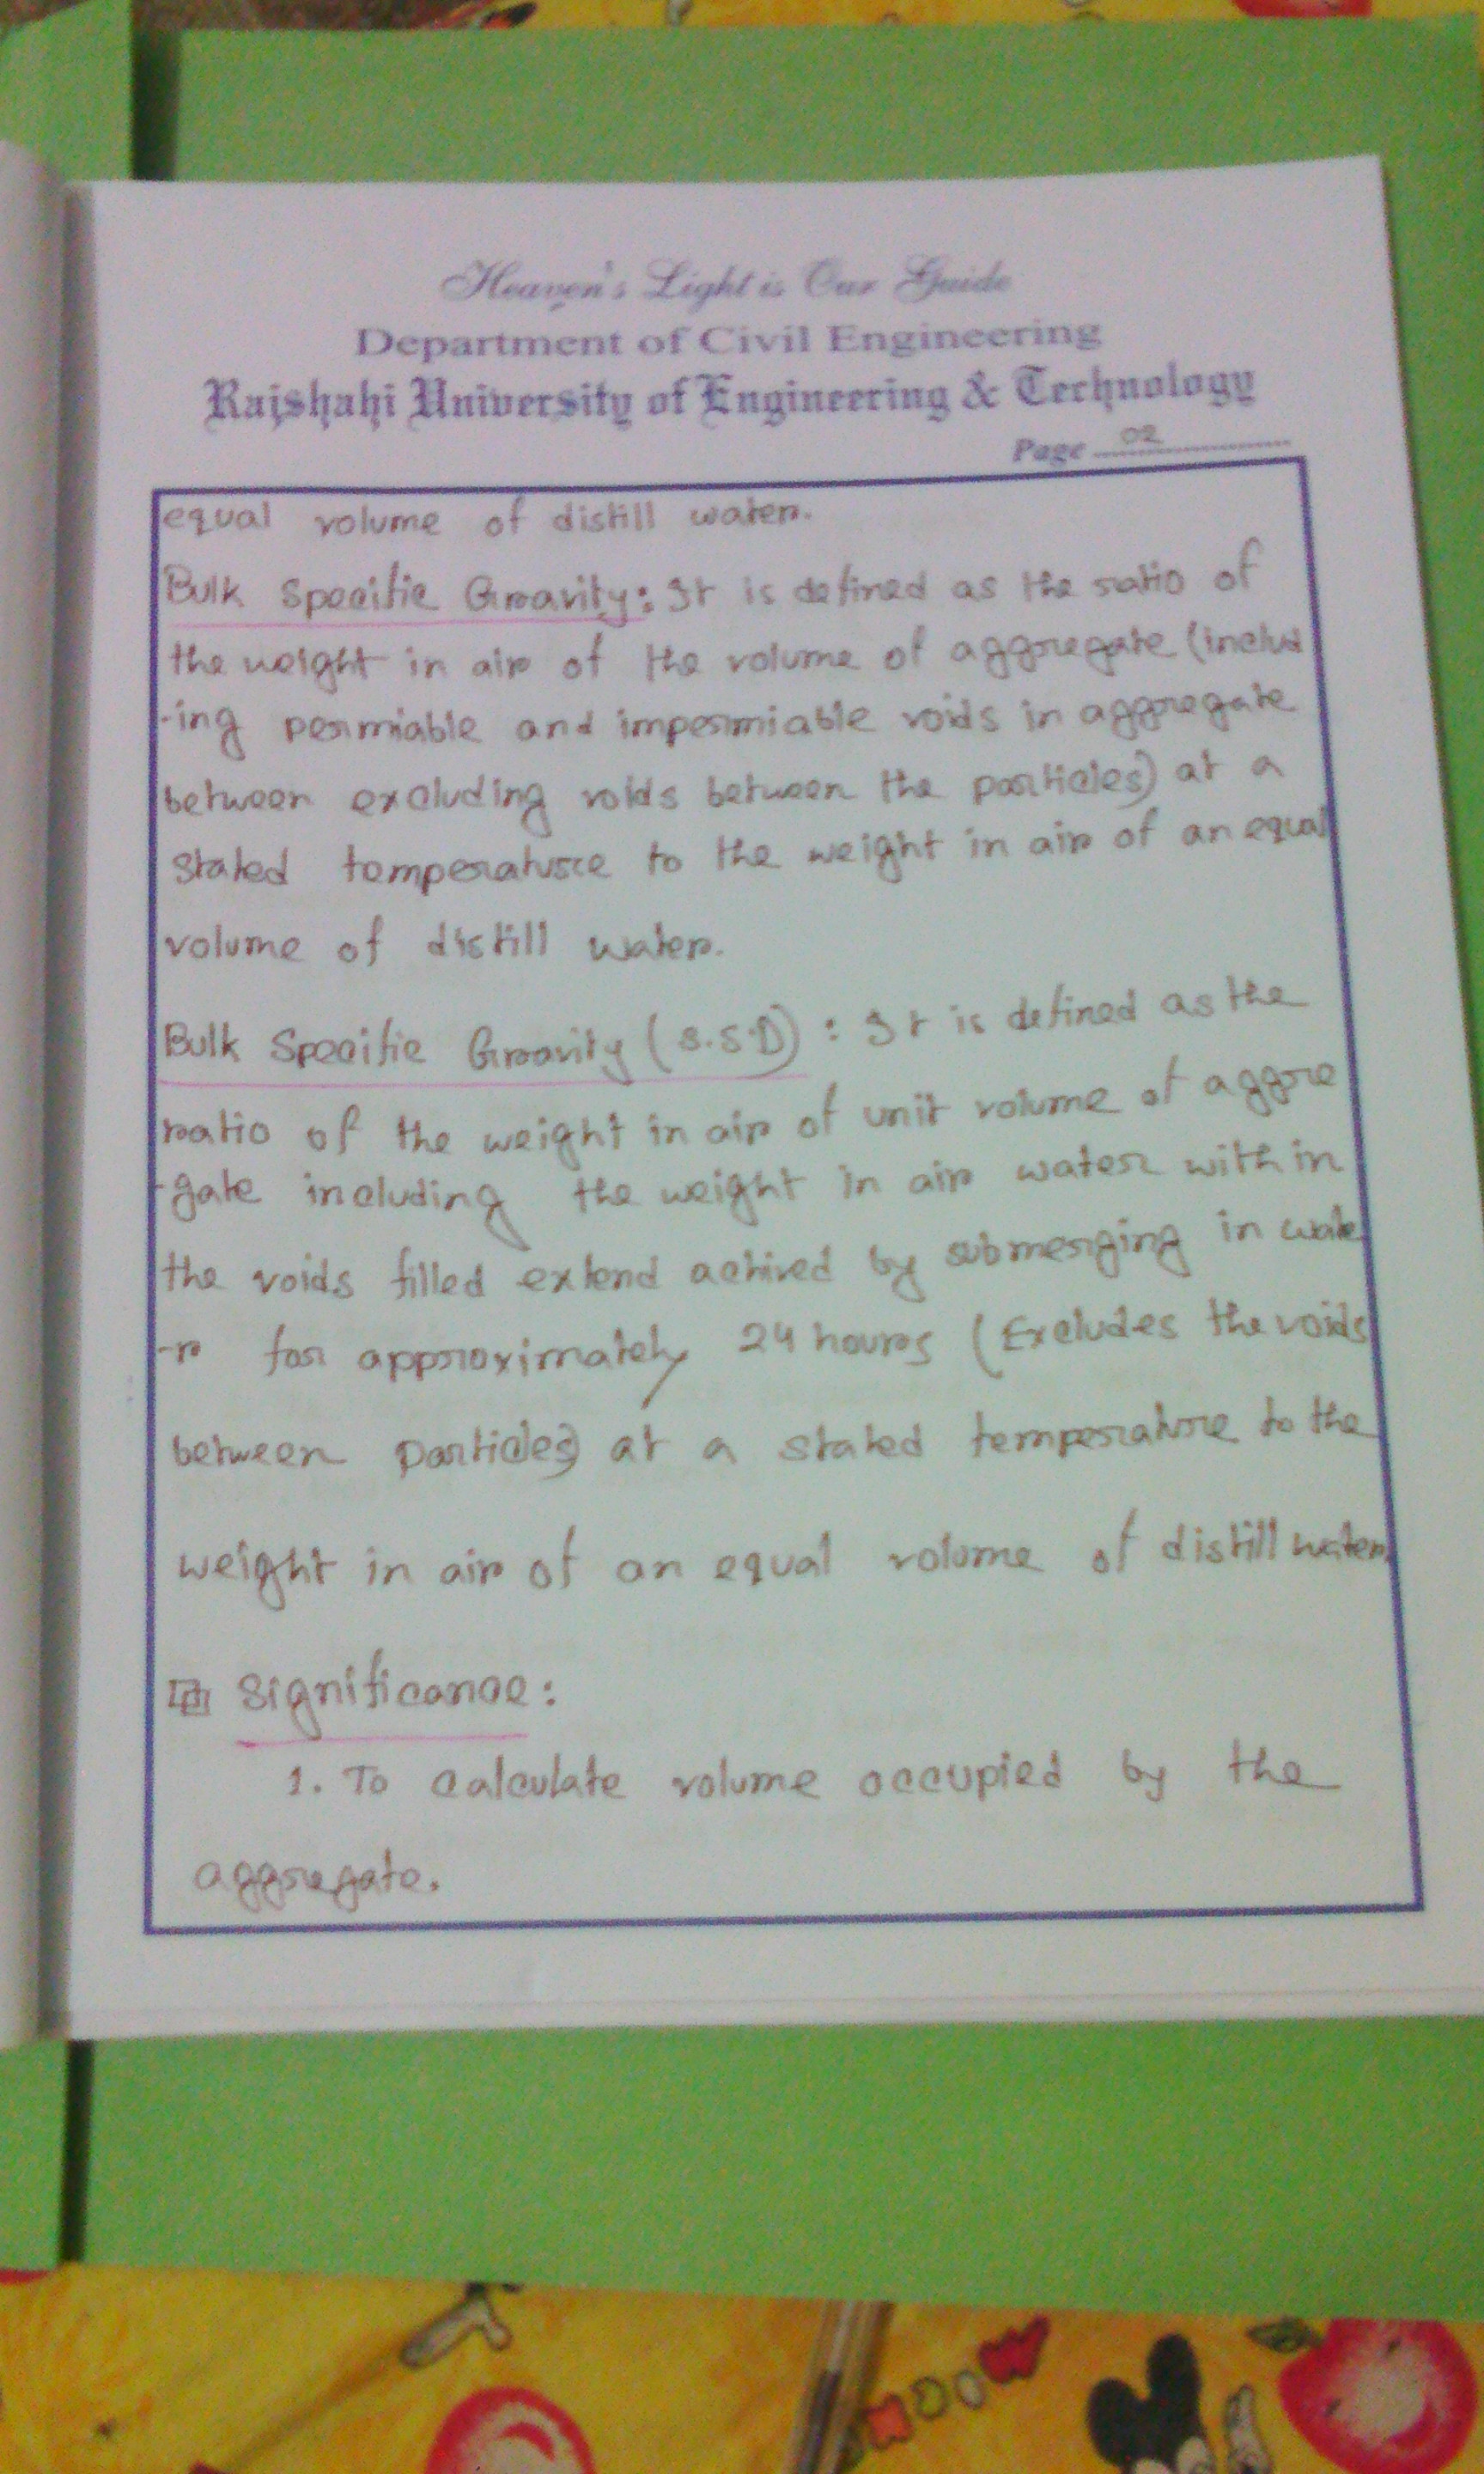 Heaven's Light is Our Guide
Department of Civil Engineering
Rajshahi University of Engineering & Technology
Page 02
equal volume of distill water.
Bulk Specific Gravity: It is defined as the ratio of
the weight in air of the volume of aggregate (includ
-ing permiable and impermiable voids in aggregate
between excluding voids between the particles) at a
stated temperature to the weight in air of an equal
volume of distill water.
Bulk Specific Gravity (S.S.D) : It is defined as the
ratio of the weight in air of unit volume of aggre
-gate including the weight in air water within
the voids filled extend achived by submerging in wate
-r for approximately 24 hours (Excludes the voids
between particles) at a stated temperature to the
weight in air of an equal volume of distill water.
Significance:
1. To calculate volume occupied by the
aggregate.